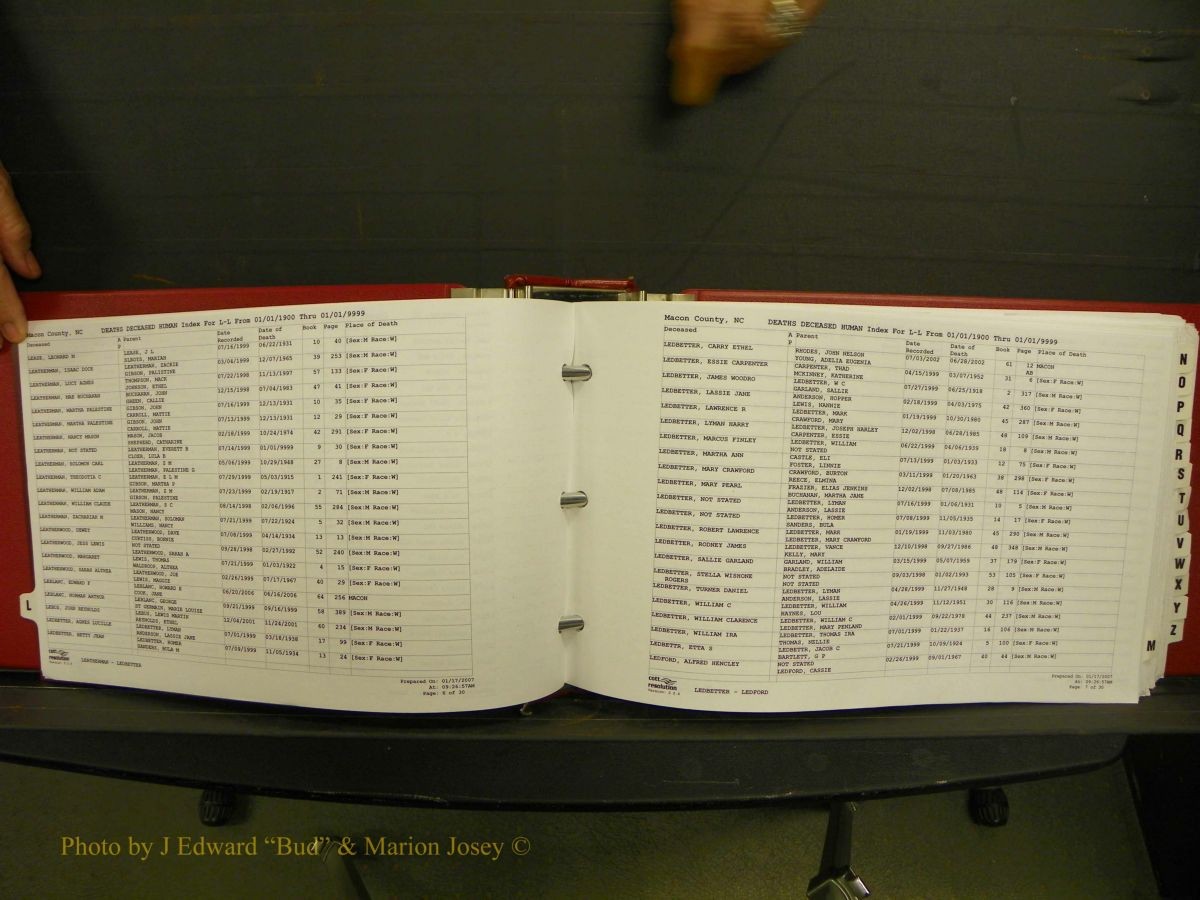 Macon County, NC DEATHS DECEASED HUMAN Index For L-L From 01/01/1900 Thru 01/01/9999
Deceased A Parent Date Date of Book Page Place of Death
P Recorded Death
LEASE, LEONARD M LEASE, J L 07/16/1999 06/22/1931 10 40 [Sex:M Race:W]
LEATHERMAN, ISAAC DOCK LEATHERMAN, ZACKIE 03/04/1999 12/07/1965 39 253 [Sex:M Race:W]
GIBSON, PALESTINE
LEATHERMAN, LUCY AGNES THOMPSON, MACK 07/22/1998 11/13/1997 57 133 [Sex:F Race:W]
JOHNSON, ETHEL
LEATHERMAN, MAE BUCHANAN BUCHANAN, JOHN 12/15/1998 07/04/1983 47 41 [Sex:F Race:W]
GREEN, CALLIE
LEATHERMAN, MARTHA PALESTINE GIBSON, JOHN 07/16/1999 12/13/1931 10 35 [Sex:F Race:W]
CARROLL, MATTIE
LEATHERMAN, MARTHA PALESTINE GIBSON, JOHN 07/13/1999 12/13/1931 12 29 [Sex:F Race:W]
CARROLL, MATTIE
LEATHERMAN, NANCY MASON MASON, JACOB 02/18/1999 10/24/1974 42 291 [Sex:F Race:W]
SHEPHERD, CATHARINE
LEATHERMAN, NOT STATED LEATHERMAN, EVERETT B 07/14/1999 01/01/9999 9 30 [Sex:F Race:W]
CLOER, LULA B
LEATHERMAN, SOLOMON CARL 05/06/1999 10/29/1948 27 8 [Sex:M Race:W]
LEATHERMAN, PALESTINE G
LEATHERMAN, THEODOTIA C LEATHERMAN, E L M 07/29/1999 05/03/1915 1 241 [Sex:F Race:W]
GIBSON, MARTHA P
LEATHERMAN, WILLIAM ADAM 07/23/1999 02/19/1917 2 71 [Sex:M Race:W]
GIBSON, PALESTINE
LEATHERMAN, WILLIAM CLAUDE 08/14/1998 02/06/1996 55 284 [Sex:M Race:W]
MASON, NANCY
LEATHERMAN, ZACHARIAH M LEATHERMAN, SOLOMAN 07/21/1999 07/22/1924 5 32 [Sex:M Race:W]
WILLIAMS, NANCY
LEATHERWOOD, DEWEY LEATHERWOOD, DAVE 07/08/1999 04/14/1934 13 13 [Sex:M Race:W]
CURTISS, BONNIE
LEATHERWOOD, JESS LEWIS NOT STATED 09/28/1998 02/27/1992 52 240 [Sex:M Race:W]
LEATHERWOOD, SARAH A
LEATHERWOOD, MARGARET LEWIS, THOMAS 07/21/1999 01/03/1922 4 15 [Sex:F Race:W]
WALDROOP, ALTHEA
LEATHERWOOD, SARAH ALTHEA LEATHERWOOD, JOE 02/26/1999 07/17/1967 40 29 [Sex:F Race:W]
LEWIS, MAGGIE
LEBLANC, EDWARD F LEBLANC, HOWARD E 06/20/2006 06/16/2006 64 256 MACON
COOK, JANE
LEBLANC, NORMAN ARTHUR LEBLANC, GEORGE 09/21/1999 09/16/1999 58 389 [Sex:M Race:W]
ST GERMAIN, MARIE LOUISE
LEBUS, JOHN REYNOLDS LEBUS, LEWIS MARTIN 12/04/2001 11/24/2001 60 234 [Sex:M Race:W]
REYNOLDS, ETHEL
LEDBETTER, AGNES LUCILLE LEDBETTER, LYMAN 07/01/1999 03/18/1938 17 99 [Sex:F Race:W]
ANDERSON, LASSIE JANE
LEDBETTER, BETTY JEAN LEDBETTER, HOMER 07/09/1999 11/05/1934 13 24 [Sex:F Race:W]
SANDERS, BULA M
LEATHERMAN - LEDBETTER
cott
resolution
Prepared On: 01/17/2007
At: 09:26:57AM
Page: 6 of 30
L
Macon County, NC DEATHS DECEASED HUMAN Index For L-L From 01/01/1900 Thru 01/01/9999
Deceased A Parent Date Date of Book Page Place of Death
P Recorded Death
LEDBETTER, CARRY ETHEL RHODES, JOHN NELSON 07/03/2002 06/28/2002 61 12 MACON
YOUNG, ADELIA EUGENIA AB
LEDBETTER, ESSIE CARPENTER CARPENTER, THAD 04/15/1999 03/07/1952 31 6 [Sex:F Race:W]
MCKINNEY, KATHERINE
LEDBETTER, JAMES WOODRO LEDBETTER, W C 07/27/1999 06/25/1918 2 317 [Sex:M Race:W]
GARLAND, SALLIE
LEDBETTER, LASSIE JANE ANDERSON, HOPPER 02/18/1999 04/03/1975 42 360 [Sex:F Race:W]
LEWIS, NANNIE
LEDBETTER, LAWRENCE R LEDBETTER, MARK 01/19/1999 10/30/1980 45 287 [Sex:M Race:W]
CRAWFORD, MARY
LEDBETTER, LYMAN HARRY LEDBETTER, JOSEPH HARLEY 12/02/1998 06/28/1985 48 109 [Sex:M Race:W]
CARPENTER, ESSIE
LEDBETTER, MARCUS FINLEY LEDBETTER, WILLIAM 06/22/1999 04/06/1939 18 8 [Sex:M Race:W]
NOT STATED
LEDBETTER, MARTHA ANN CASTLE, ELI 07/13/1999 01/03/1933 12 75 [Sex:F Race:W]
FOSTER, LINNIE
LEDBETTER, MARY CRAWFORD CRAWFORD, BURTON 03/11/1999 01/20/1963 38 298 [Sex:F Race:W]
REECE, ELMINA
LEDBETTER, MARY PEARL FRAZIER, ELIAS JENKINS 12/02/1998 07/08/1985 48 114 [Sex:F Race:W]
BUCHANAN, MARTHA JANE
LEDBETTER, NOT STATED LEDBETTER, LYMAN 07/16/1999 01/06/1931 10 5 [Sex:M Race:W]
ANDERSON, LASSIE
LEDBETTER, NOT STATED LEDBETTER, HOMER 07/08/1999 11/05/1935 14 17 [Sex:F Race:W]
SANDERS, BULA
LEDBETTER, ROBERT LAWRENCE LEDBETTER, MARK 01/19/1999 11/03/1980 45 290 [Sex:M Race:W]
LEDBETTER, MARY CRAWFORD
LEDBETTER, RODNEY JAMES LEDBETTER, VANCE 12/10/1998 09/27/1986 48 348 [Sex:M Race:W]
KELLY, MARY
LEDBETTER, SALLIE GARLAND GARLAND, WILLIAM 03/15/1999 05/07/1959 37 179 [Sex:F Race:W]
BRADLEY, ADELAIDE
LEDBETTER, STELLA WISHONE NOT STATED 09/03/1998 01/02/1993 53 105 [Sex:F Race:W]
ROGERS NOT STATED
LEDBETTER, TURNER DANIEL LEDBETTER, LYMAN 04/28/1999 11/27/1948 28 9 [Sex:M Race:W]
ANDERSON, LASSIE
LEDBETTER, WILLIAM C LEDBETTER, WILLIAM 04/26/1999 11/12/1951 30 116 [Sex:M Race:W]
HAYNES, LOU
LEDBETTER, WILLIAM CLARENCE LEDBETTER, WILLIAM C 02/01/1999 09/22/1978 44 237 [Sex:M Race:W]
LEDBETTER, MARY PENLAND
LEDBETTER, WILLIAM IRA LEDBETTER, THOMAS IRA 07/01/1999 01/22/1937 16 106 [Sex:M Race:W]
THOMAS, NELLIE
LEDBETTR, ETTA S LEDBETTR, JACOB C 07/21/1999 10/09/1924 5 100 [Sex:F Race:W]
BARTLETT, G P
LEDFORD, ALFRED HENCLEY NOT STATED 02/26/1999 09/01/1967 40 44 [Sex:M Race:W]
LEDFORD, CASSIE
LEDBETTER - LEDFORD
cott
resolution
Prepared On: 01/17/2007
At: 09:26:57AM
Page 7 of 30
N
O
P
Q
R
S
T
U
V
W
X
Y
Z
M
Photo by J Edward “Bud” & Marion Josey ©